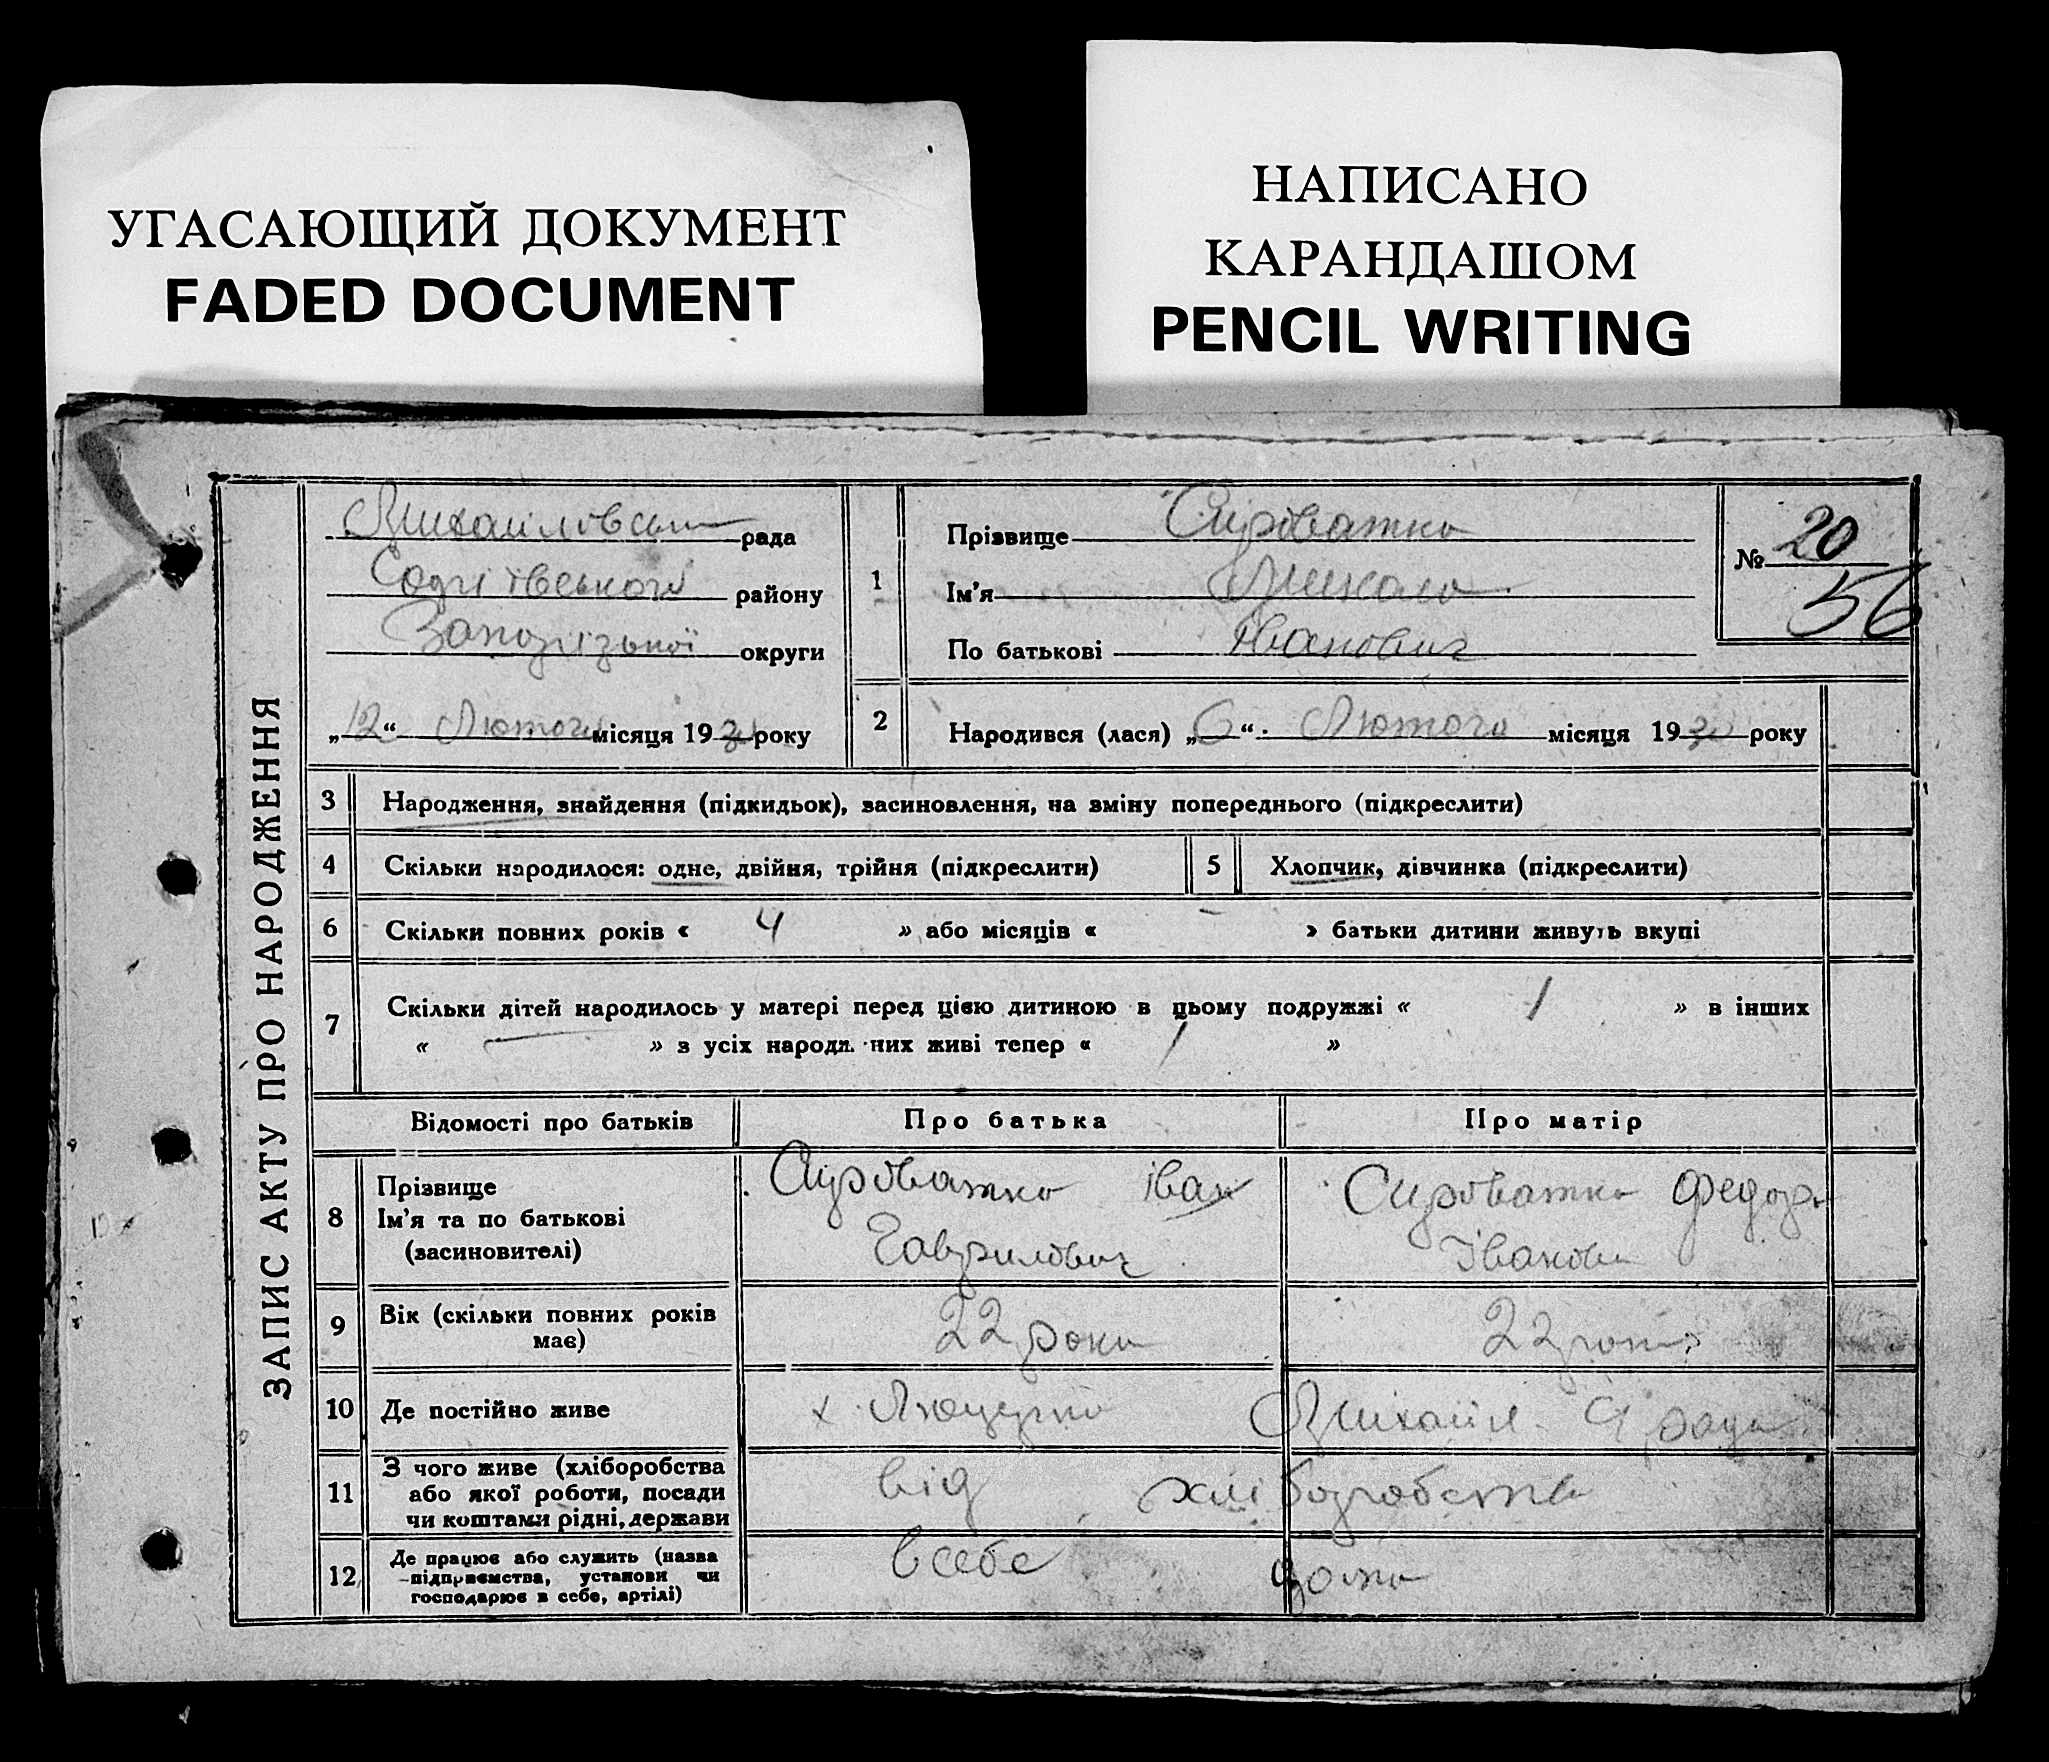 УГАСАЮЩИЙ ДОКУМЕНТ
FADED DOCUMENT
НАПИСАНО
КАРАНДАШОМ
PENCIL WRITING
ЗАПИС АКТУ ПРО НАРОДЖЕННЯ
рада
району
Запорізької округи
„12“ Лютого місяця 1930 року
1
Прізвище Сироватко
Ім'я Михайло
По батькові Іванович
№ 20
56
2
Народився (лася) „6“ Лютого місяця 1930 року
3 Народження, знайдення (підкидьок), засиновлення, на зміну попереднього (підкреслити)
4 Скільки народилося: одне, двійня, трійня (підкреслити)
5 Хлопчик, дівчинка (підкреслити)
6 Скільки повних років « 4 » або місяців « - » батьки дитини живуть вкупі
7 Скільки дітей народилось у матері перед цією дитиною в цьому подружжі « 1 » в інших
« — » з усіх народж них живі тепер « 1 »
Відомості про батьків
Про батька
Про матір
8
Прізвище
Ім'я та по батькові
(засиновителі)
Сироватко Іван
Гаврилович
Сироватко Федора
Іванов
9
Вік (скільки повних років
має)
22 роки
22 роки
10 Де постійно живе
х. Люцерно Михайл. С/рада
11
З чого живе (хліборобства
або якої роботи, посади
чи коштами рідні, держави
від хліборобства
12
Де працює або служить (назва
підприємства, установи чи
господарює в себе, артілі)
всебе дома